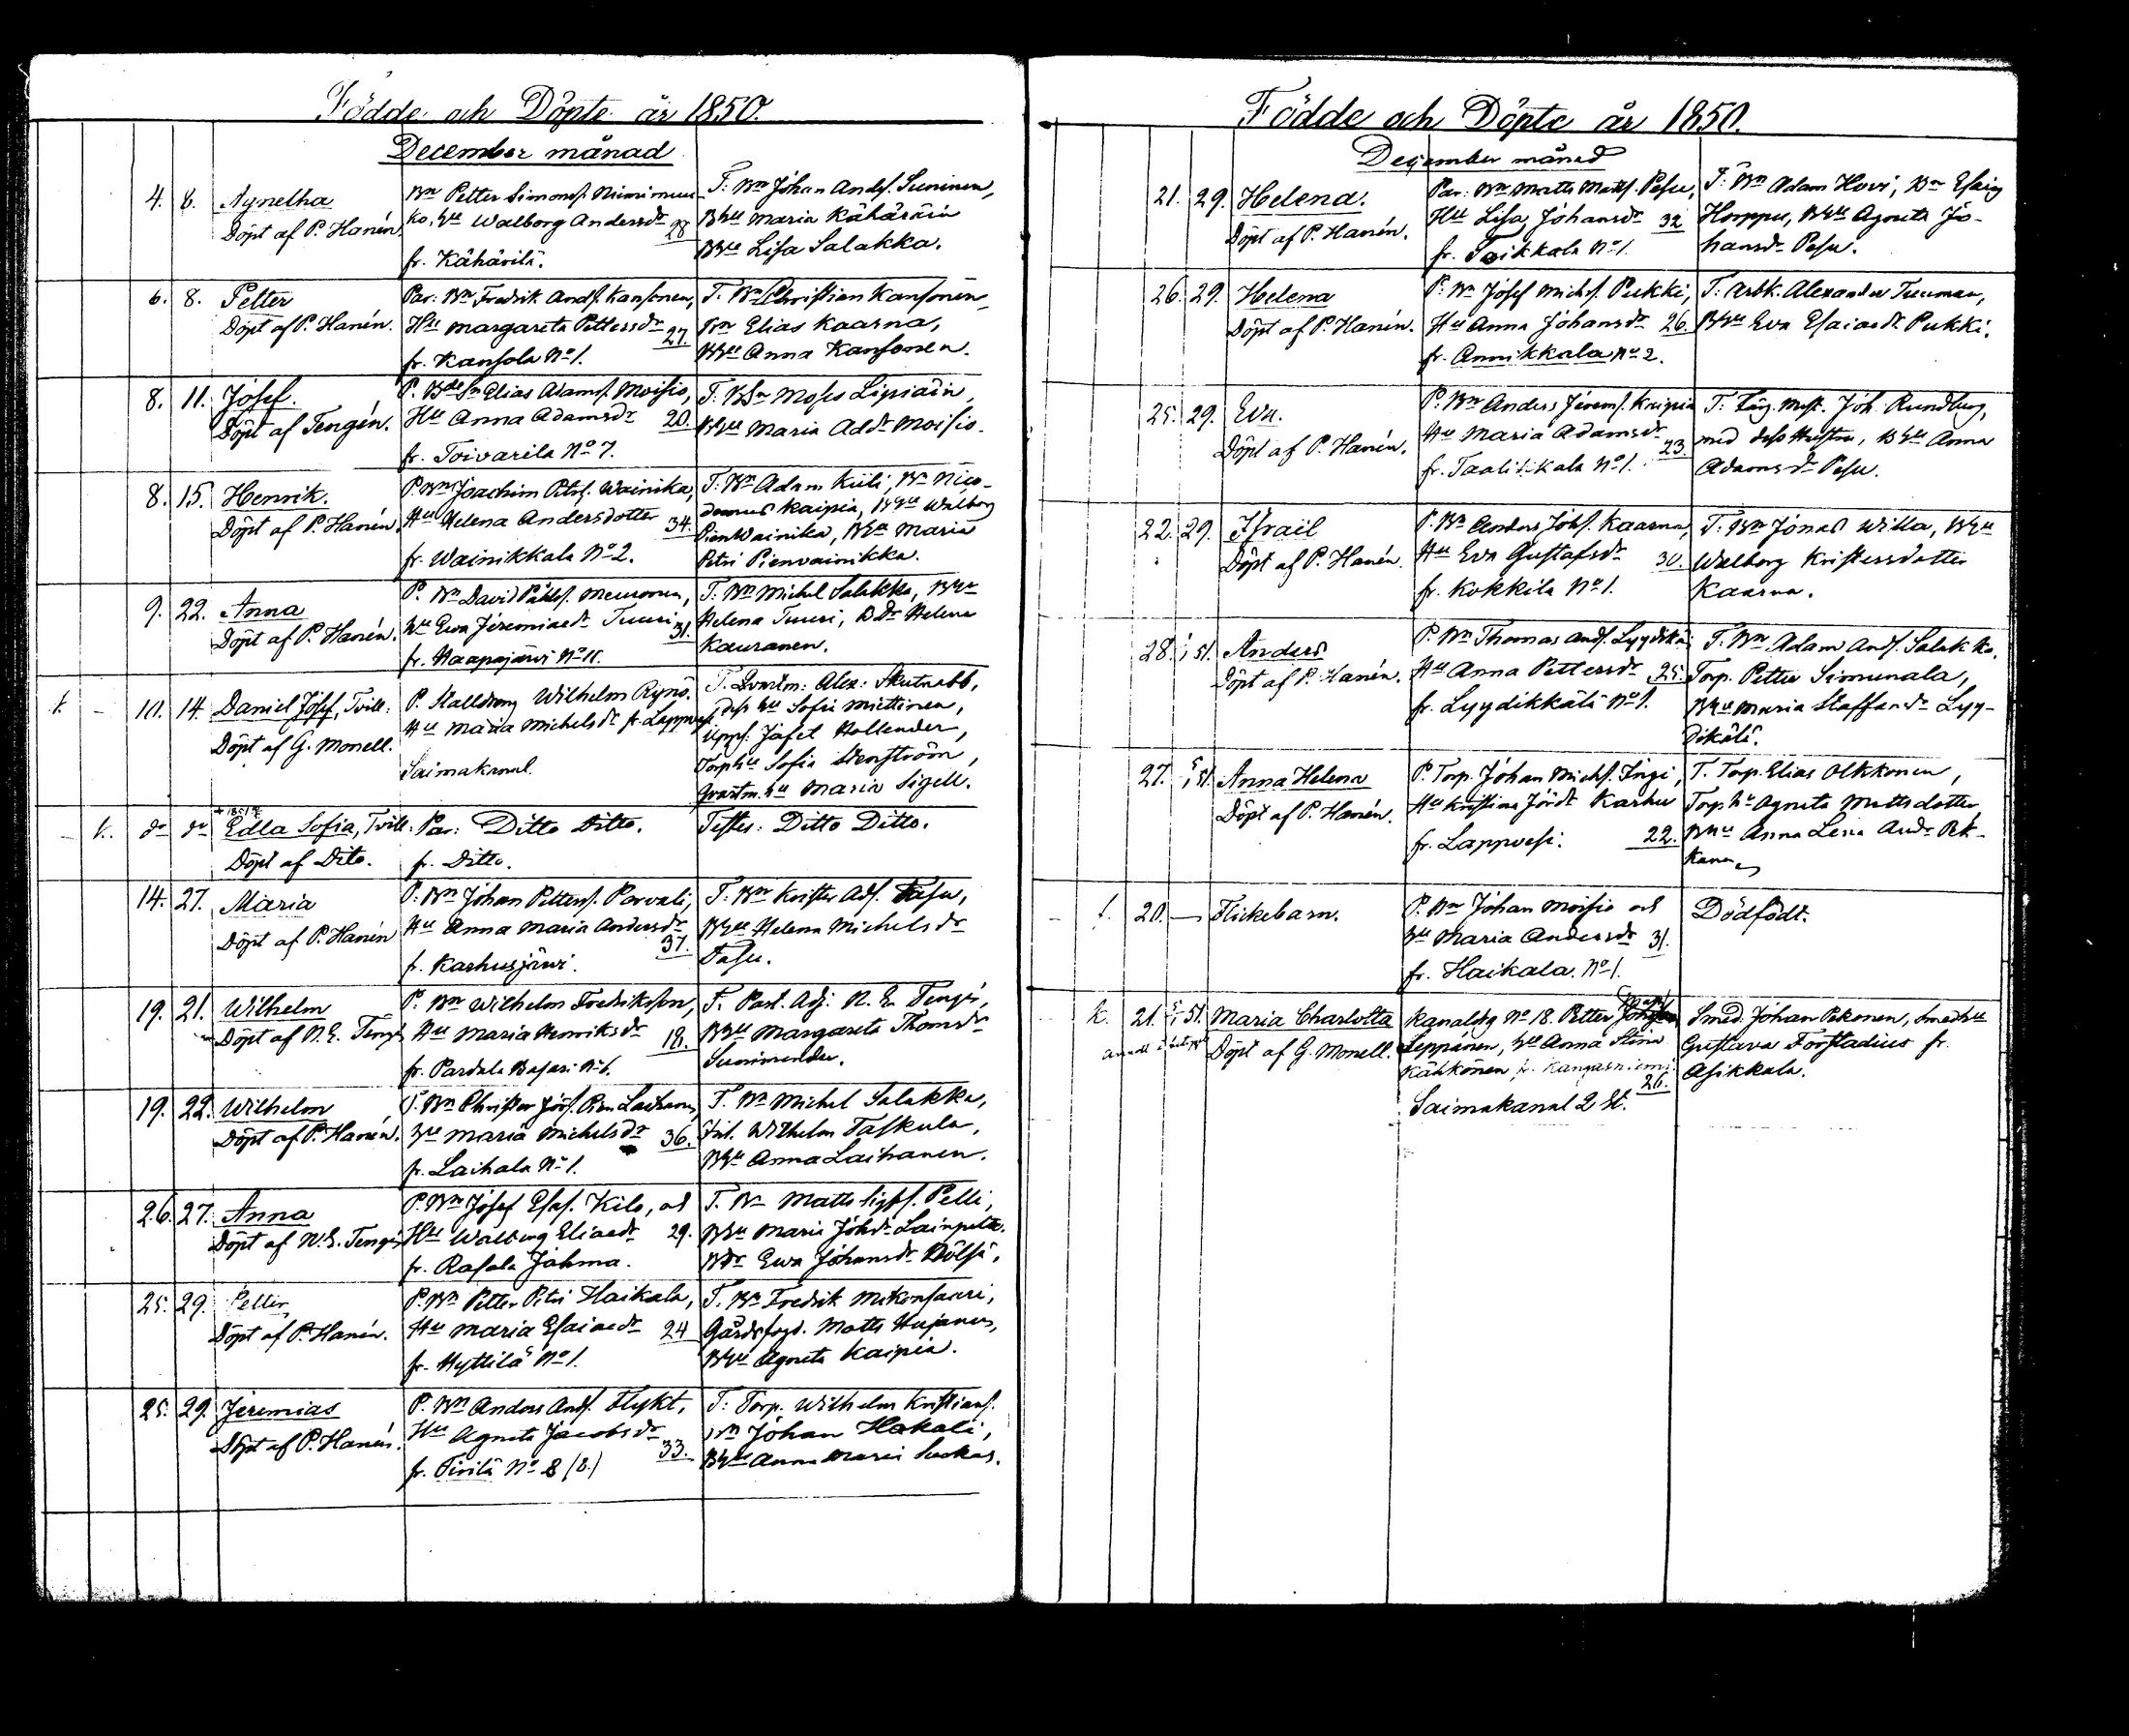 Födde och Döpte år 1850.
December månad
4. 8. Agnetha
Döpt af P. Hanén.
Bn Petter Simonss.
ko, Hu Walborg Andersdr 28
fr. Kähärilä.
T: Bn Johan Andss. Suninen,
Bhu Maria Kähäräin
Bhu Lisa Salakka.
6. 8. Petter
Döpt af P. Hanén.
Par: Bn Fredrik Andss. Kansonen,
Hu Margareta Pettersdr 27.
fr. Kansola No 1.
T. Bn Christian Kansonen
Bn Elias Kaarna,
Bhu Anna Kansonen.
8. 11. Josef.
Döpt af Tengén.
P. Elias Adamss. Moisio,
Hu Anna Adamsdr 20.
fr. Toivarila No 7.
T. Moses Lipiäin,
Bhu Maria Addr Moisio.
8. 15. Henrik.
Döpt af P. Hanén.
P. Bn Joachim Petrs. Wainika,
Hu Helena Andersdotter 34.
fr. Wainikkala No 2.
T. Bn Adam Kiili, Bn Nico-
demus Kaipia, Bhu Walborg
PienWainika, Bhu Maria
Petri Pienvainikka.
9. 22. Anna
Döpt af P. Hanén.
P. Bn David Påhlss. Meuronen,
Hu Ewa Jeremiaedr Tuuri 31.
fr. Haapajärvi No 11.
T. Bn Michel Salakka, Bhu
Helena Tuuri, Bdr Helena
Kauranen.
1. - 10. 14. Daniel Josef, Tvill:
Döpt af G. Monell.
P. Stalldräng Wilhelm Rynö.
Hu Maria Michelsdr fr. Lappvesi.
Saimakanal.
T. Qvartm: Alex: Skutnabb,
dess hu Sofia Miettinen,
Upps. Jafet Hollender,
Torphu Sofia Stenström,
Qvartm. hu Maria Sigell.
- 1. do do Edla Sofia, Tvill:
Döpt af Dito.
Par: Ditto Ditto.
fr. Ditto.
Testes: Ditto Ditto.
14. 27. Maria
Döpt af P. Hanén
P: Bn Johan Petterss. Parvali,
Hu Anna Maria Andersdr 37.
fr. Karhusjärvi.
T. Bn Krister Ads. Pasu,
Bhu Helena Michelsdr
Pasu.
19. 21. Wilhelm
Döpt af N. E. Tengén
P. Bn Wilhelm Fredriksson,
Hu Maria Henriksdr 18.
fr. Pardala Bajari No 1.
T. Past. Adj. N. E. Tengén,
Bhu Margareta Thomsdr
19. 22. Wilhelm
Döpt af P. Hanén.
P. Bn Christer Jöss. Pien Laihanen,
Hu Maria Michelsdr 36.
fr. Laihala No 1.
T. Bn Michel Salakka,
Inh. Wilhelm Taskula,
Bhu Anna Laihanen.
26. 27. Anna
Döpt af N. E. Tengén
P. Bn Josef Esas. Kilo, och
Hu Walborg Eliaedr 29.
fr. Rasala Johma.
T. Bn Matts Sigfs. Pelli,
Bhu Maria Johdr Lainpelto.
Bdr Ewa Johansdr Pölsä.
25. 29. Petter
Döpt af P. Hanén.
P. Bn Petter Petri Haikala,
Hu Maria Esaiaedr 24
fr. Hyttilä No 1.
T. Bn Fredrik Mikonsaari,
Gårdsfogd. Matts Hujanen,
Bhu Agneta Kaipia.
25. 29. Jeremias
Döpt af P. Hanén.
P. Bn Anders Ands. Flykt,
Hu Agneta Jacobsdr 33.
fr. Tirilä No 8 (8.)
T: Torp. Wilhelm Kristians.
Bn Johan Hakali,
Bhu Anna Maria Suckas.
Födde och Döpte år 1850.
December månad
21. 29. Helena.
Döpt af P. Hanén.
Par: Bn Matts Matts. Pesu,
Hu Lisa Johansdr 32
fr. Toikkala No 1.
T: Bn Adam Hovi, Bn Esaias
Horppu, Bhu Agneta Jo-
hansdr Pesu.
26. 29. Helena
Döpt af P. Hanén.
P. Bn Josef Michs. Pukki,
Hu Anna Johansdr 26.
fr. Annikkala No 2.
T: Arbk. Alexander Treuman,
Bhu Eva Esaiaedr Pukki.
25. 29. Eva.
Döpt af P. Hanén.
P. Bn Anders Jerems. Kaipia
Hu Maria Adamsdr 23.
fr. Taalikkala No 1.
T: Joh. Rundberg,
med dess Hustru, Bhu Anna
Adamsdr Pesu.
22. 29. Israil
Döpt af P. Hanén.
P. Bn Anders Johs. Kaarna,
Hu Eva Gustafsdr 30.
fr. Kokkila No 1.
T: Bn Jonas Willa, Bhu
Walborg Kristersdotter
Kaarna.
28. 1/1 51. Anders
Döpt af P. Hanén.
P. Bn Thomas Ands. Lyydikäi
Hu Anna Pettersdr 25.
fr. Lyydikkälä No 1.
T. Bn Adam Ands. Salakka.
Torp. Petter Simunala,
Bhu Maria Staffansdr Lyy-
dikäi.
27. 51. Anna Helena
Döpt af P. Hanén.
P. Torp. Johan Michs. Ingi,
Hu Kristina Jördr Karhu
fr. Lappvesi. 22.
T. Torp. Elias Olkkonen,
Torphu Agneta Mattsdotter,
Bhu Anna Lena Andr Pek-
kanen
- 1. 20. - Flickebarn.
P. Bn Johan Moisio och
Hu Maria Andersdr 31.
fr. Haikala. No 1.
Dödfödt.
k. 21. 51. Maria Charlotta
Döpt af G. Monell.
Kanaldrg No 18. Petter
Leppänen, Hu Anna Stina
Kähkönen, fr. Kangasniemi 26.
Saimakanal 2 St.
Smed. Johan Pekonen, Smedhu
Gustava Forstadius fr.
Asikkala.